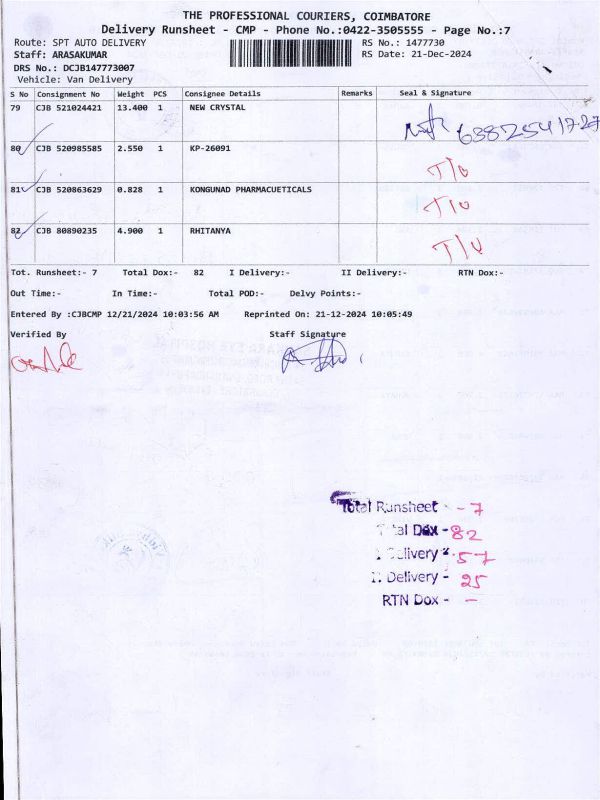 THE PROFESSIONAL COURIERS, COIMBATORE
Delivery Runsheet - CMP - Phone No.:0422-3505555 - Page No.:7
Route: SPT AUTO DELIVERY
RS No.: 1477730
Staff: ARASAKUMAR
RS Date: 21-Dec-2024
DRS No.: DCJB147773007
Vehicle: Van Delivery
S No Consignment No Weight PCS Consignee Details Remarks Seal & Signature
79 CJB 521024421 13.400 1 NEW CRYSTAL
6382541727
80 CJB 520985585 2.550 1 KP-26091 T/U
81 CJB 520863629 0.828 1 KONGUNAD PHARMACUETICALS T/U
82 CJB 80890235 4.900 1 RHITANYA T/U
Tot. Runsheet:- 7 Total Dox:- 82 I Delivery:- II Delivery:- RTN Dox:-
Out Time:- In Time:- Total POD:- Delvy Points:-
Entered By :CJBCMP 12/21/2024 10:03:56 AM Reprinted On: 21-12-2024 10:05:49
Verified By Staff Signature
Total Runsheet - 7
Total Dox - 82
I Delivery - 57
II Delivery - 25
RTN Dox - -